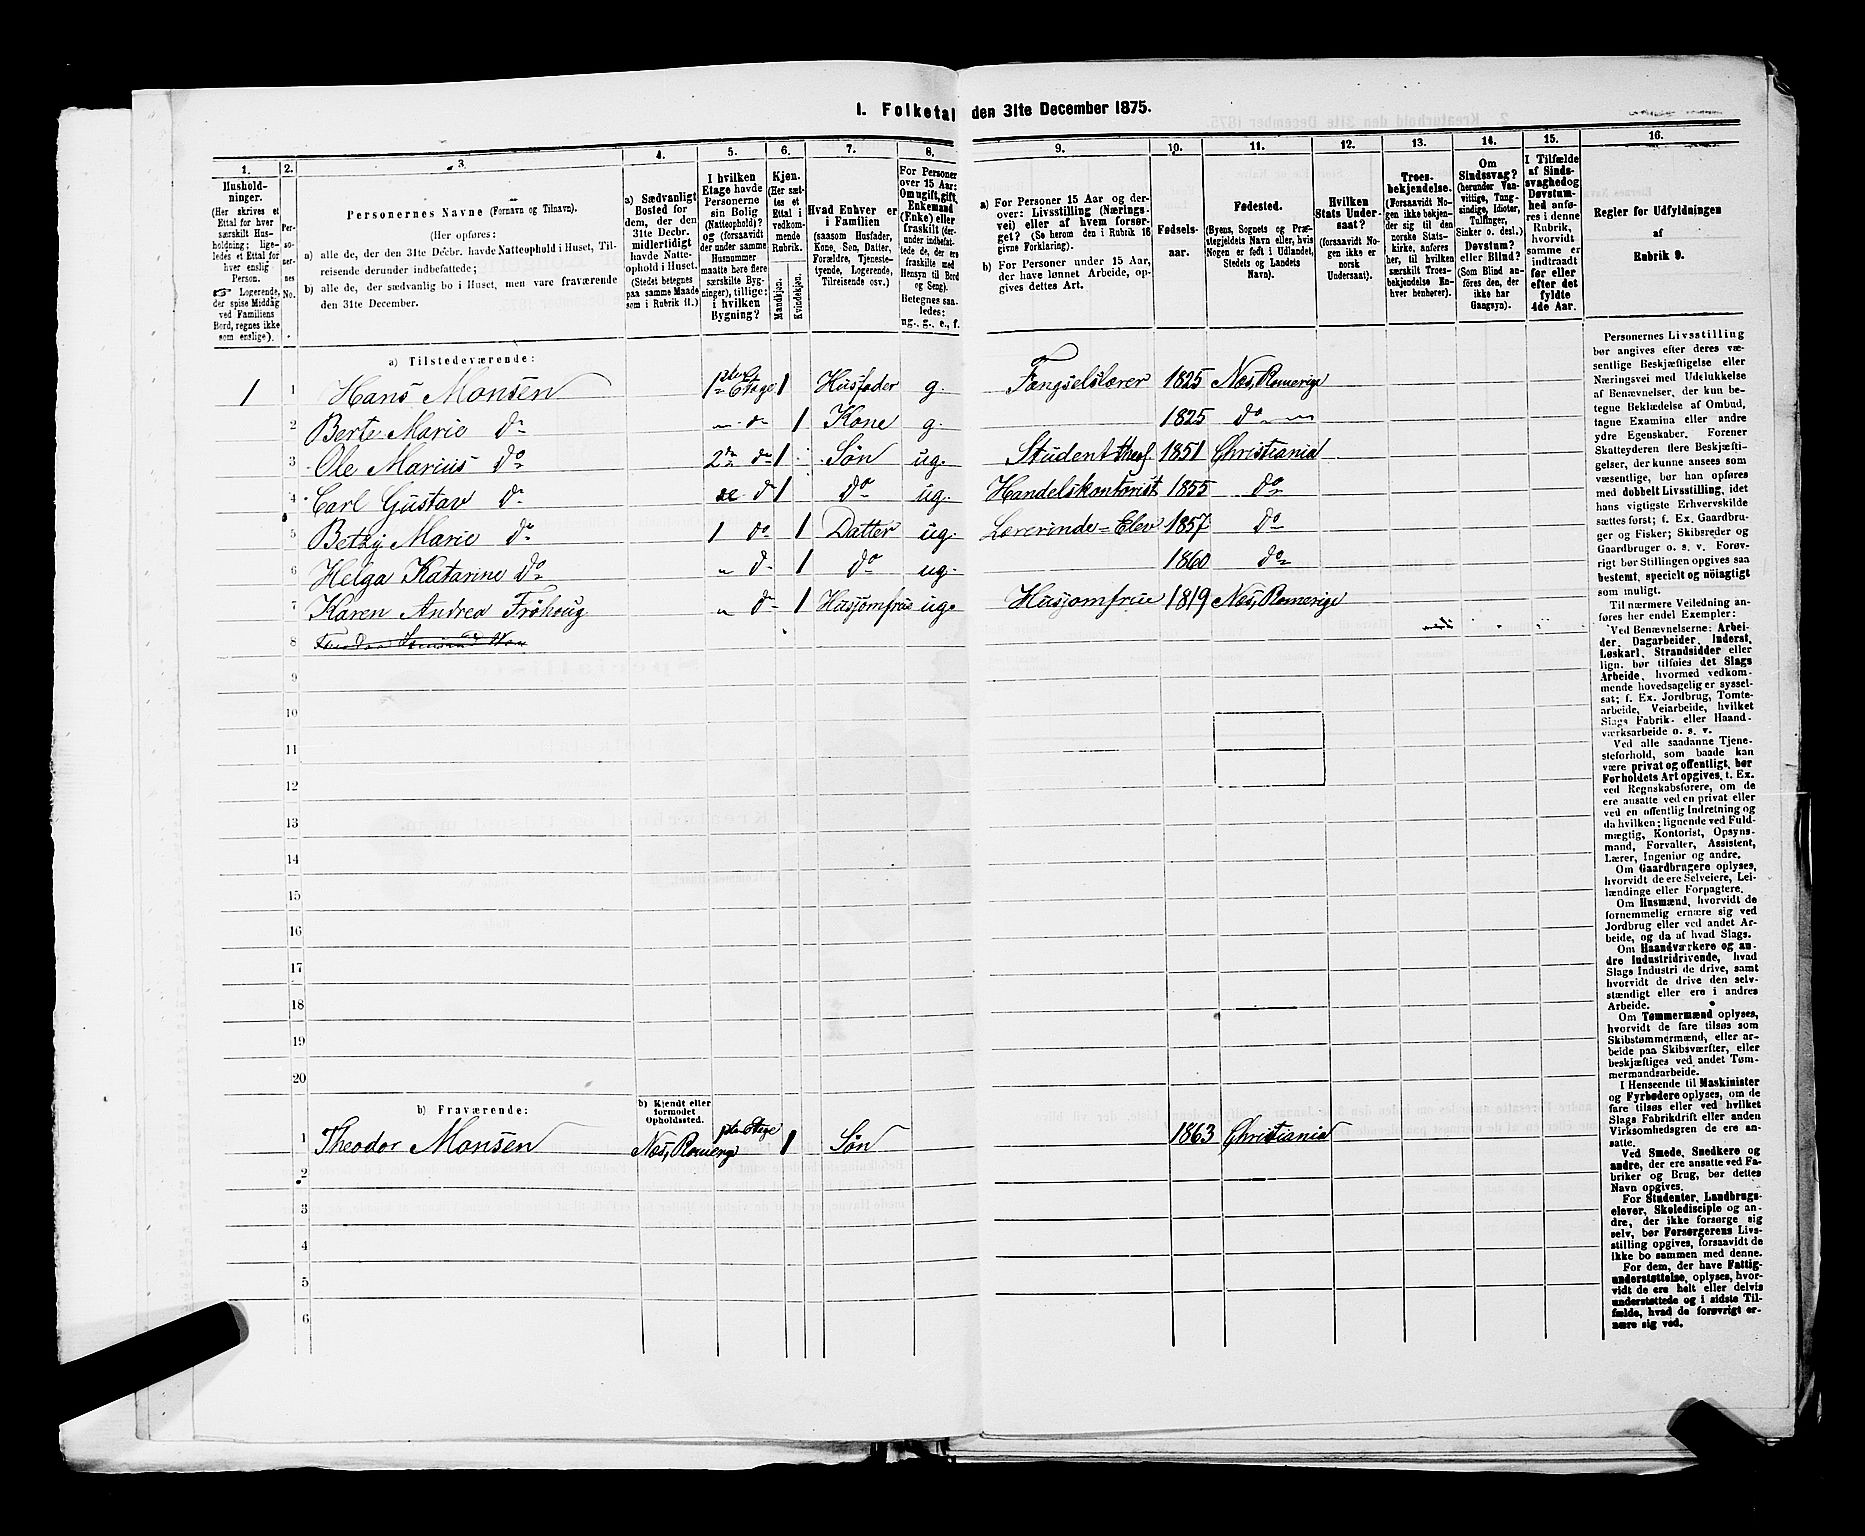 1. Folketal den 31te December 1875.
1. 2. 3. 4. 5. 6. 7. 8. 9. 10. 11. 12. 13. 14. 15. 16.
Hushold-
ninger.
(Her skrives et
Ettal for hver
særskilt Hus-
holdning; lige-
ledes et Ettal for
hver enslig
Person.
☞ Logerende,
der spise Middag
ved Familiens
Bord, regnes ikke
som enslige).
Per-
so-
ner-
nes
No.
Personernes Navne (Fornavn og Tilnavn).
(Her opføres:
a) alle de, der den 31te Decbr. havde Natteophold i Huset, Til-
reisende derunder indbefattede;
b) alle de, der sædvanlig bo i Huset, men vare fraværende
den 31te December.
a) Sædvanligt
Bosted for
dem, der den
31te Decbr.
midlertidigt
havde Natte-
ophold i Huset.
(Stedet betegnes
paa samme Maade
som i Rubrik 11.)
I hvilken
Etage havde
Personerne
sin Bolig
(Natteophold)?
og (forsaavidt
der under samme
Husnummer
maatte høre flere
særskilte Byg-
ninger), tillige:
i hvilken
Bygning?
Kjøn.
(Her sæt-
tes et
Ettal i
vedkom-
mende
Rubrik.
Mandkjøn.
Kvindekjøn.
Hvad Enhver er
i Familien
(saasom Husfader,
Kone, Søn, Datter,
Forældre, Tjeneste-
tyende, Logerende,
Tilreisende osv.)
For Personer
over 15 Aar:
Om ugift, gift,
Enkemand
(Enke) eller
fraskilt (der-
under indbefat-
tede de, der ere
fraskilte med
Hensyn til Bord
og Seng).
Betegnes saa-
ledes:
ug., g., e., f.
a) For Personer 15 Aar og der-
over: Livsstilling (Nærings-
vei) eller af hvem forsør-
get? (Se herom den i Rubrik 16
givne Forklaring).
b) For Personer under 15 Aar,
der have lønnet Arbeide, op-
gives dettes Art.
Fødsels-
aar.
Fødested.
(Byens, Sognets og Præ-
stegjeldets Navn eller, hvis
Nogen er født i Udlandet,
Stedets og Landets
Navn).
Hvilken
Stats Under-
saat?
(forsaavidt No-
gen ikke er
norsk
Undersaat).
Troes-
bekjendelse.
(Forsaavidt No-
gen ikke bekjen-
der sig til den
norske Stats-
kirke, anføres
her, til hvilken
særskilt Troes-
bekjendelse En-
hver henhører).
Om
Sindssvag?
(herunder Van-
vittige, Tung-
sindige, Idioter,
Tullinger,
Sinker o. desl.)
Døvstum?
eller Blind?
(Som Blind an-
føres den, der
ikke har
Gangsyn).
I Tilfælde
af Sinds-
svaghed og
Døvstum-
hed anfø-
res i denne
Rubrik,
hvorvidt
samme er
indtraadt
før eller
efter det
fyldte
4de Aar.
Regler for Udfyldningen
af
Rubrik 9.
a) Tilstedeværende:
1 1 Hans Monsen 1ste Etage 1 Husfader g. Fængselslærer 1825 Næs, Romerige
2 Berte Marie do " do 1 Kone g. 1825 do "
3 Ole Marius do 2den do 1 Søn ug. Student theol 1851 Christiania
4 Carl Gustav do do 1 do ug. Handelskontorist 1855 do
5 Betzy Marie do 1 do 1 Datter ug. Lærerinde-Elev 1857 do
6 Helga Katarine do " do 1 do ug. 1860 do
7 Karen Andrea Frøhoug " do 1 Husjomfrue ug. Husjomfrue 1819 Næs, Romerige
8
9
10
11
12
13
14
15
16
17
18
19
20
b) Fraværende:
b) Kjendt eller
formodet
Opholdssted.
1 Theodor Monsen Næs, Romerige Etage 1 Søn 1863 Christiania
2
3
4
5
6
Personernes Livsstilling
bør angives efter deres væ-
sentlige Beskjæftigelse eller
Næringsvei med Udelukkelse
af Benævnelser, der kun be-
tegne Beklædelse af Ombud,
tagne Examina eller andre
ydre Egenskaber. Forener
Skatteyderen flere Beskjæfti-
gelser, der kunne ansees som
væsentlige, bør han opføres
med dobbelt Livsstilling, idet
hans vigtigste Erhvervskilde
sættes først; f. Ex. Gaardbru-
ger og Fisker; Skibsreder og
Gaardbruger o. s. v. Forøv-
rigt bør Stillingen opgives saa
bestemt, specielt og nøiagtigt
som muligt.
Til nærmere Veiledning an-
føres her endel Exempler:
Ved Benævnelserne: Arbei-
der, Dagarbeider, Inderst,
Løskarl, Strandsidder eller
lign. bør tilføies det Slags
Arbeide, hvormed vedkom-
mende hovedsagelig er syssel-
sat; f. Ex. Jordbrug, Tomte-
arbeide, Veiarbeide, hvilket
Slags Fabrik- eller Haand-
værksarbeide o. s. v.
Ved alle saadanne Tjene-
steforhold, som baade kan
være privat og offentligt, bør
Forholdets Art opgives, t. Ex.
ved Regnskabsførere, om de
ere ansatte ved en privat eller
ved en offentlig Indretning og
da hvilken; lignende ved Fuld-
mægtig, Kontorist, Opsyns-
mand, Forvalter, Assistent,
Lærer, Ingeniør og andre.
Om Gaardbrugere oplyses,
hvorvidt de ere Selveiere, Lei-
lændinge eller Forpagtere.
Om Husmænd, hvorvidt de
fornemmelig ernære sig ved
Jordbrug eller ved andet Ar-
beide, og da af hvad Slags.
Om Haandværkere og an-
dre Industridrivende, hvad
Slags Industri de drive, samt
hvorvidt de drive den selv-
stændigt eller ere i andres
Arbeide.
Om Tømmermænd oplyses,
hvorvidt de fare tilsøs som
Skibstømmermænd, eller ar-
beide paa Skibsværfter, eller
beskjæftiges ved andet Tøm-
mermandsarbeide.
I Henseende til Maskinister
og Fyrbødere oplyses, om de
fare tilsøs eller ved hvilket
Slags Fabrikdrift eller anden
Virksomhedsgren de ere an-
satte.
Ved Smede, Snedkere og
andre, der ere ansatte ved Fa-
briker og Brug, bør dettes
Navn opgives.
For Studenter, Landbrugs-
elever, Skoledisciple og an-
dre, der ikke forsørge sig
selv, bør Forsørgerens Livs-
stilling opgives, forsaavidt de
ikke bo sammen med denne.
For dem, der have Fattig-
understøttelse, oplyses, hvor-
vidt de ere helt eller delvis
understøttede og i sidste Til-
fælde, hvad de forøvrigt er-
nære sig ved.